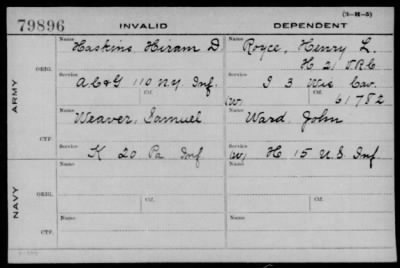 (3-H-5)
79896 INVALID DEPENDENT
Name Haskins, Hiram D Name Royce, Henry L.
H 21 V.R.C
ARMY
ORIG. Service A, C & G 110 N.Y. Inf. Ctf. Service I 3 Wis Cav. Ctf.
(W) 61782
Name Weaver, Samuel Name Ward, John
CTF. Service K 20 Pa Inf Service (W) H 15 U.S Inf.
NAVY
ORIG. Name Ctf. Name Ctf.
CTF. Name Name